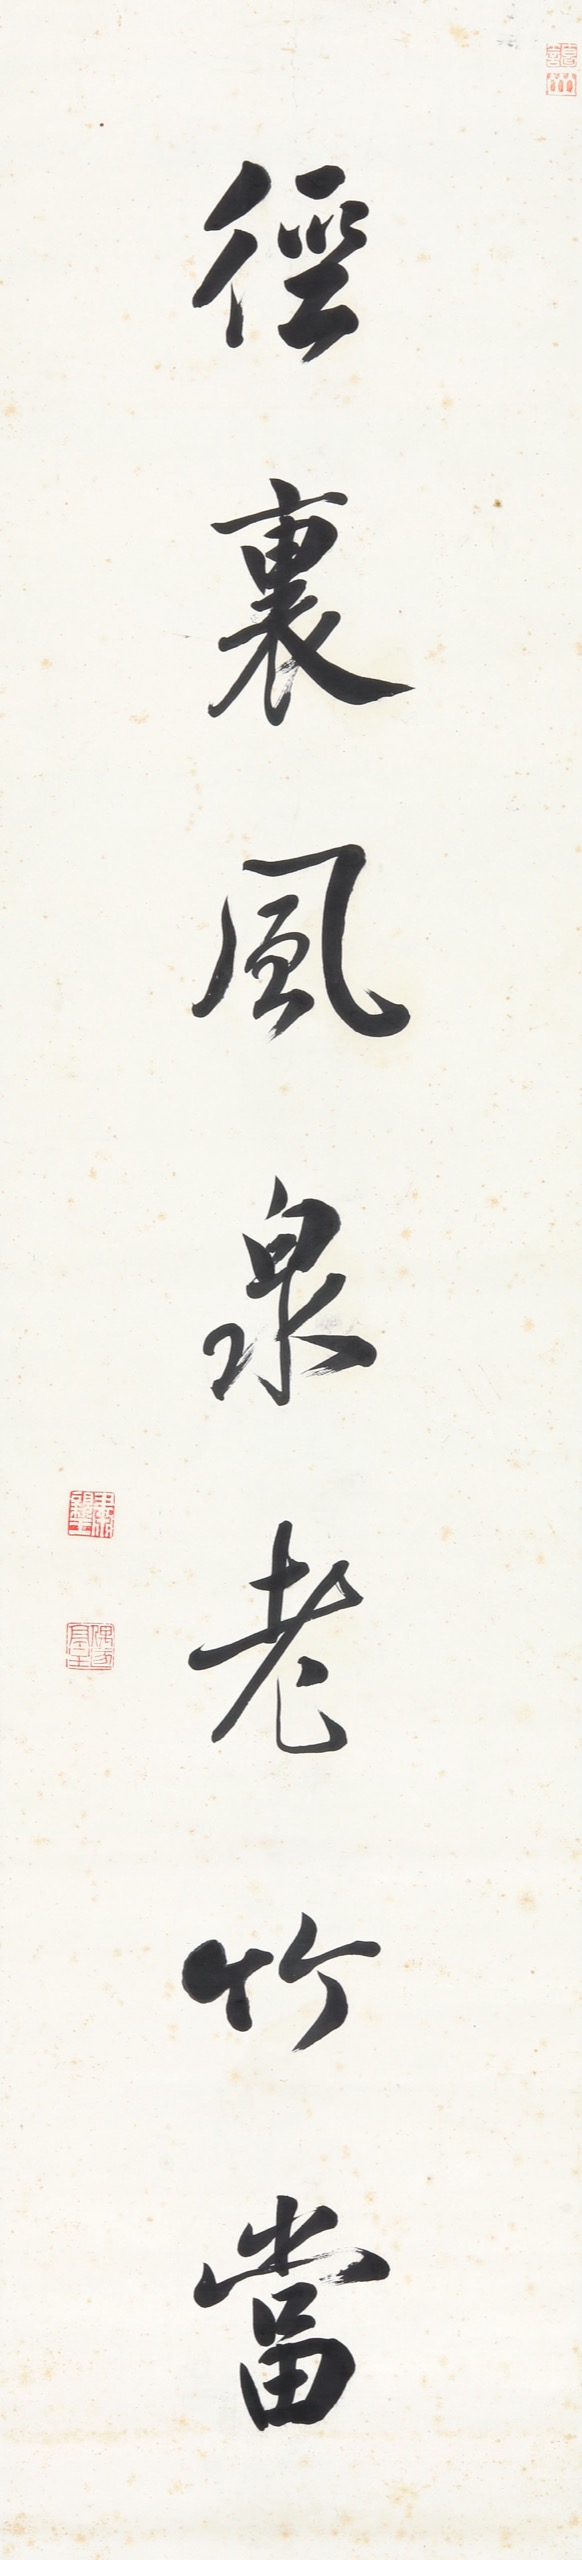 徑裏風泉老竹當